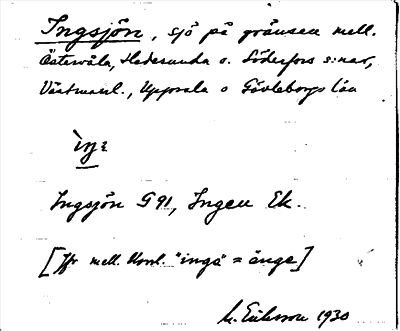 Ingsjön, sjö på gränsen mell.
Östervåla, Hedesunda o. Söderfors s:nar,
Västmanl., Uppsala o Gävleborgs län
ìŋ:
Ingsjön G 91, Ingen Ek.
[Jfr mell. "inga" = änge]
Eriksson 1930